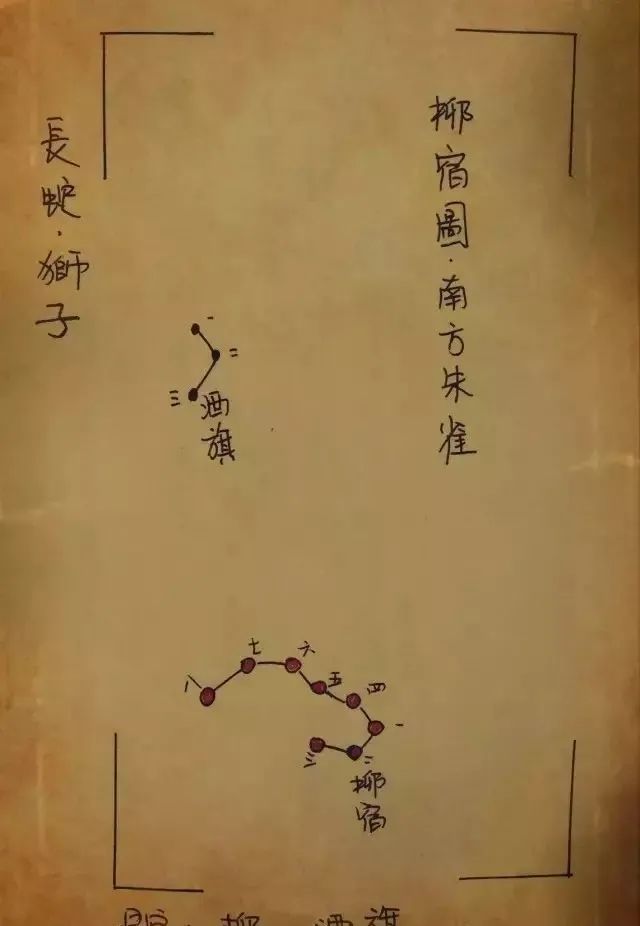 柳宿圖·南方朱雀
長蛇·獅子
一
二
三
酒旗
八
七
六
五
四
一
二
三
柳宿
柳
酒旗